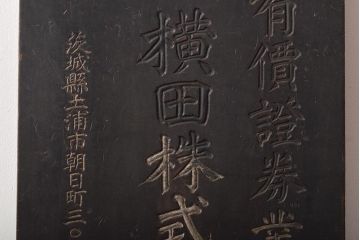 有價證券業
橫田株式
茨城縣土浦市朝日町三〇